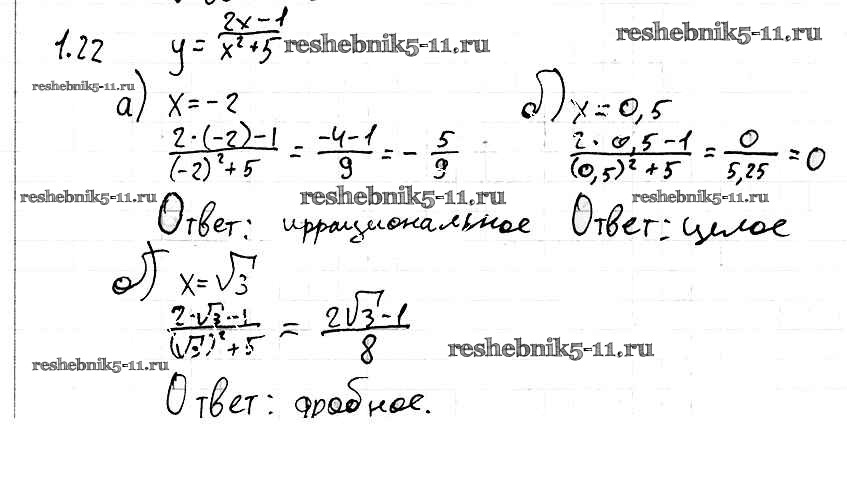 1.22 y = (2x-1)/(x²+5) reshebnik5-11.ru reshebnik5-11.ru
reshebnik5-11.ru
а) x = -2 б) x = 0,5
(2·(-2)-1)/((-2)²+5) = (-4-1)/9 = -5/9 (2·0,5-1)/((0,5)²+5) = 0/5,25 = 0
reshebnik5-11.ru reshebnik5-11.ru reshebnik5-11.ru
Ответ: иррациональное Ответ: целое
б) x = √3
(2·√3-1)/((√3)²+5) = (2√3-1)/8
reshebnik5-11.ru reshebnik5-11.ru
Ответ: дробное.